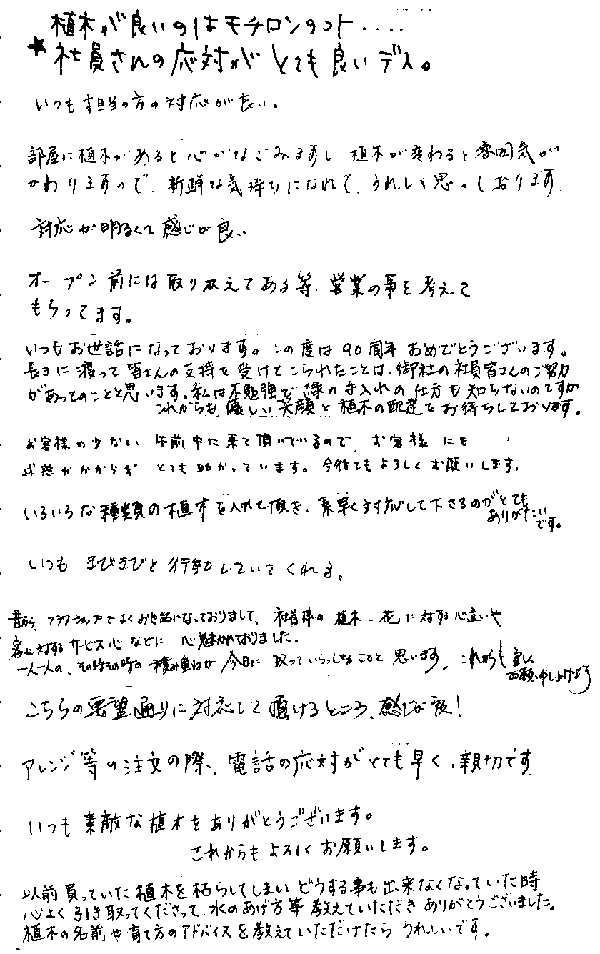 植木が良いのはモチロンのコト....
★社員さんの応対がとても良いデス。
いつも担当の方の対応が良い。
部屋に植木があると心がなごみますし 植木が変わると雰囲気が
かわりますので、新鮮な気持ちになれて、うれしく思っております
対応が明るくて感じが良い
オープン前には取り換えてある等、営業の事を考えて
もらってます。
いつもお世話になっております。この度は90周年おめでとうございます。
長きに渡って皆さんの支持を受けてこられたことは、御社の社員皆さんのご努力
があってのことと思います。私は不勉強で、緑の手入れの仕方も知らないのですが
これからも優しい笑顔と植木の配達をお待ちしております。
お客様の少ない 午前中に来て頂いているので、お客様にも
迷惑がかからず とても助かっています。今後ともよろしくお願いします。
いろいろな種類の植木を入れて頂き、素早く対応して下さるのがとても
ありがたいです。
いつも きびきびと行動していてくれる。
昔から、 よくお世話になっておりまして、社員様の植木、花に対する心遣いや
客に対するサービス心などに 心魅かれておりました。
一人一人の、その時その時の積み重ねが今日に至っていらっしゃることと思います。これからも宜しく
お願い申し上げます
こちらの要望通りに対応して頂けるところ、感じが良い!
アレンジ等の注文の際、電話の応対がとても早く、親切です
いつも素敵な植木をありがとうございます。
これからもよろしくお願いします。
以前買っていた植木を枯らしてしまい どうする事も出来なくなっていた時
心よく引き取ってくださって、水のあげ方等教えていただきありがとうございました。
植木の名前や育て方のアドバイスを教えていただけたらうれしいです。